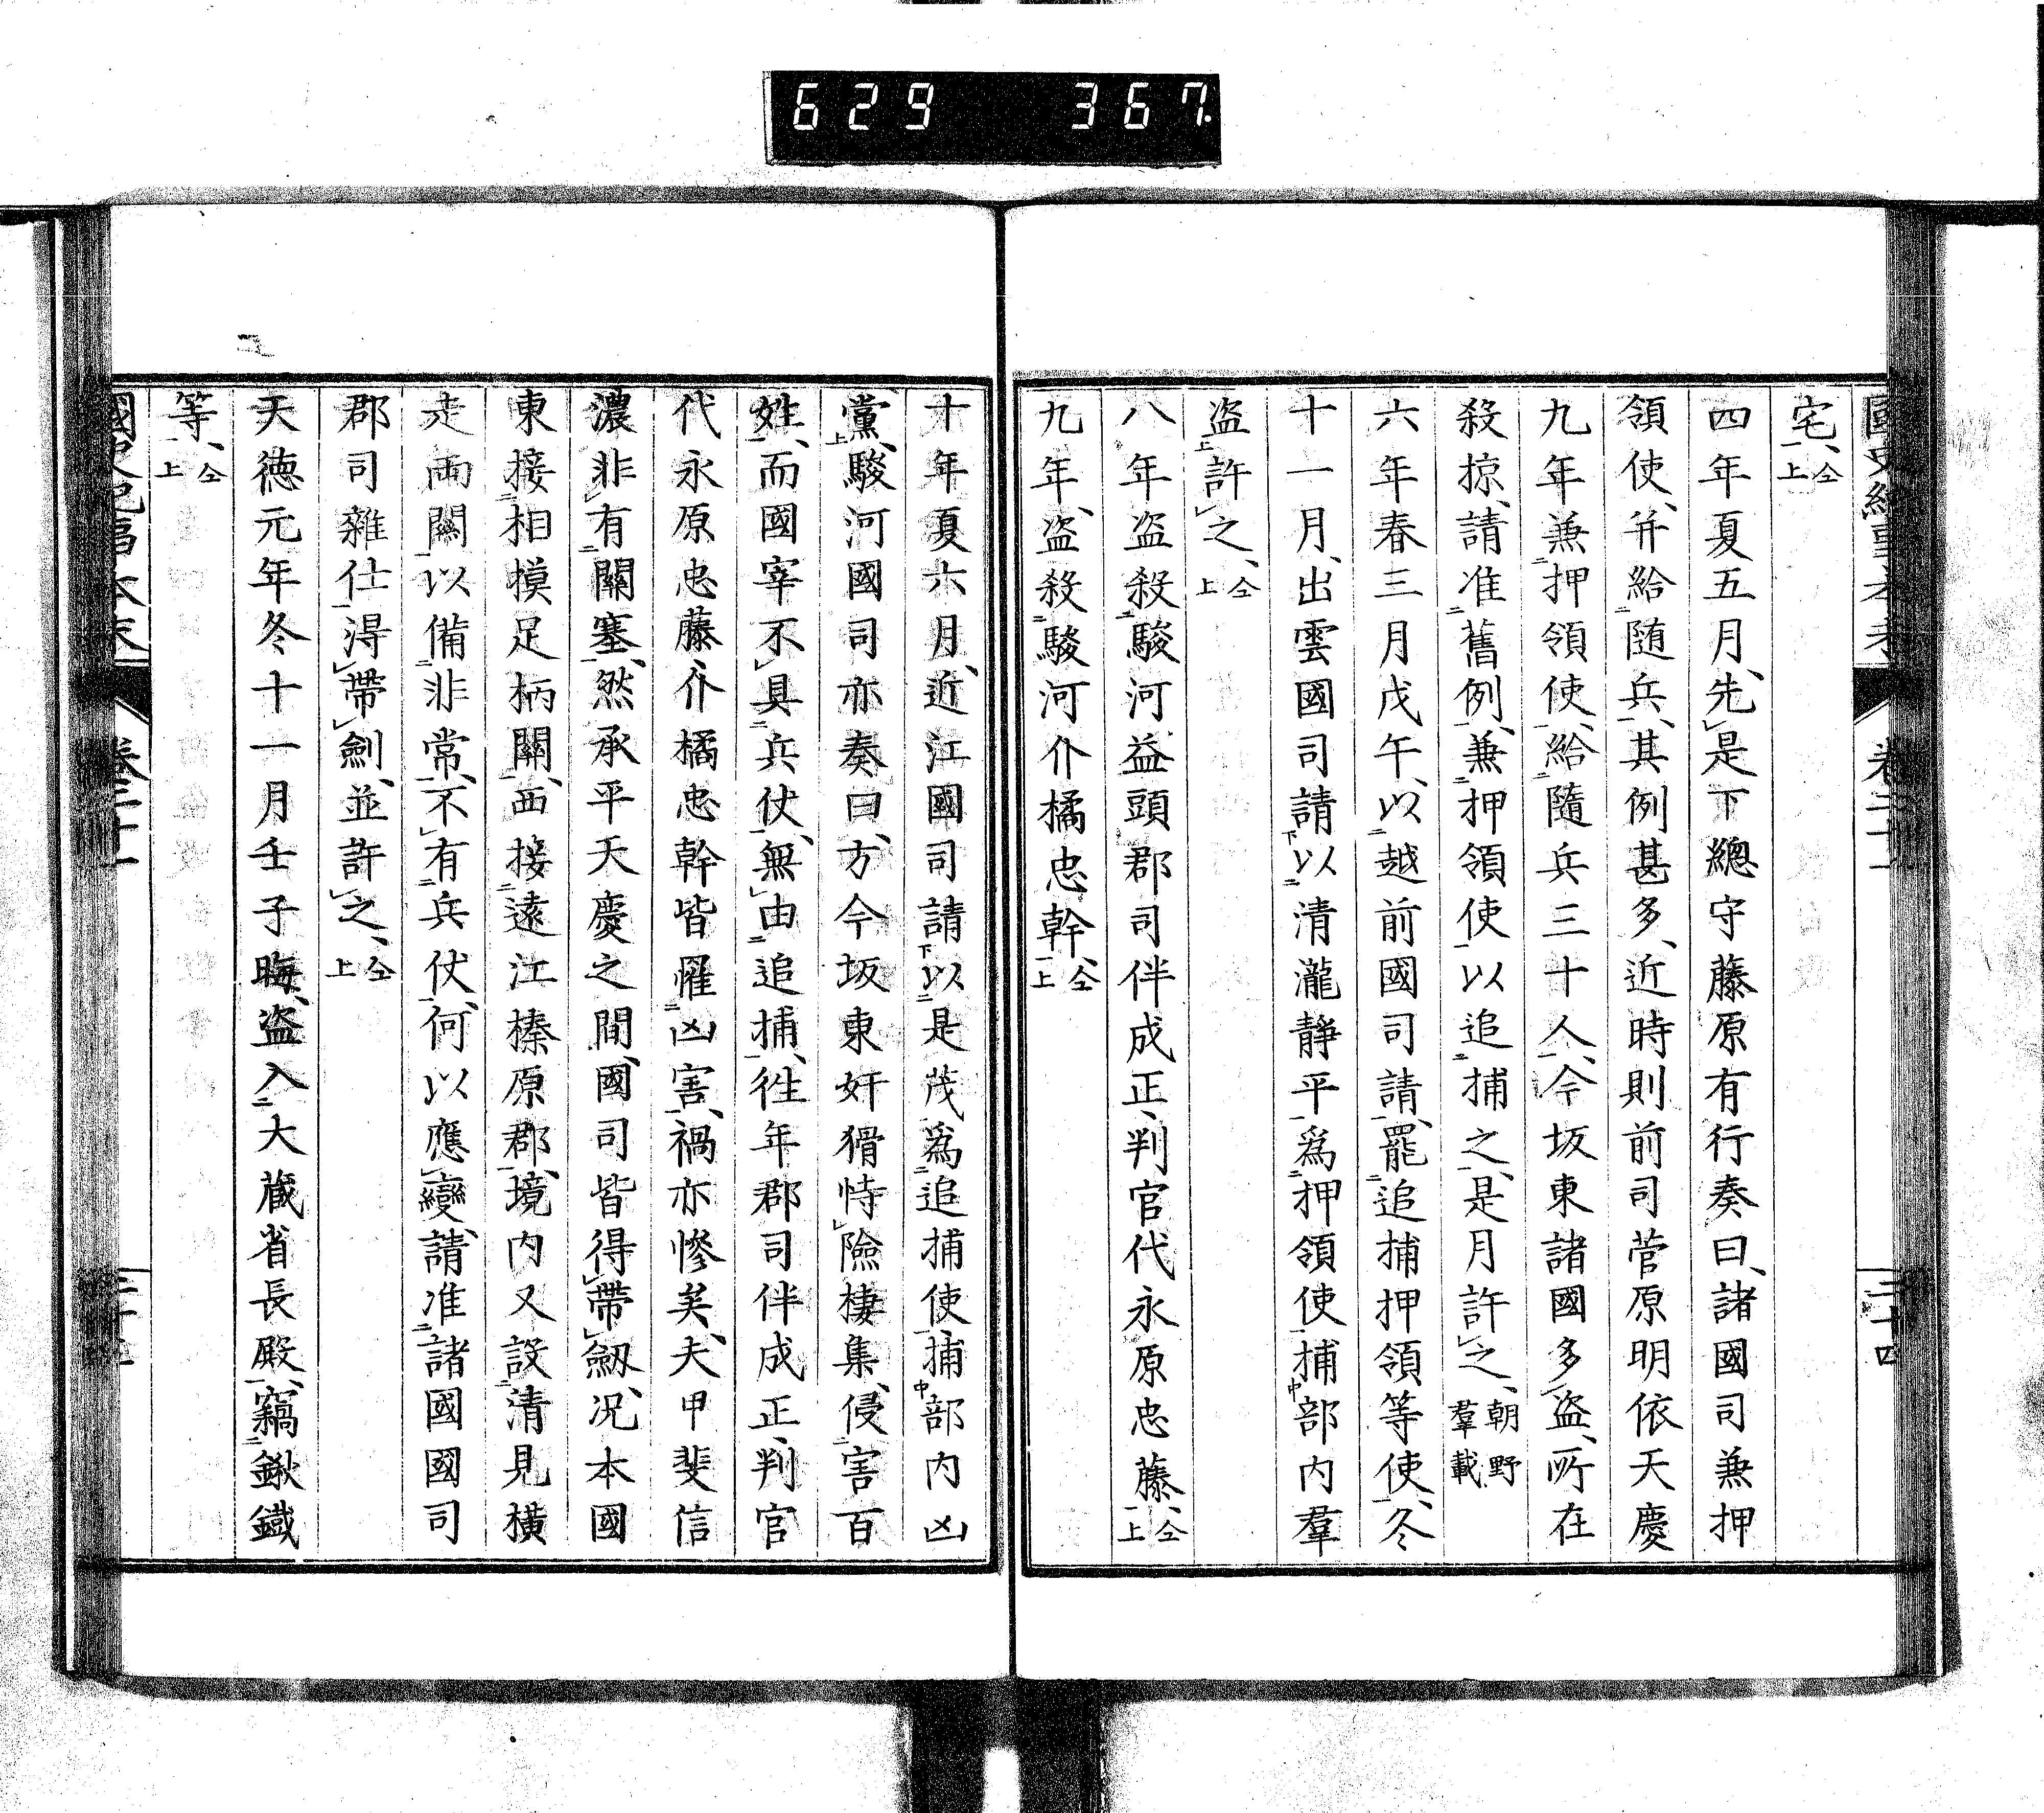 629 367.
國史紀事本末 卷二十一 三十四
宅、仝上
四年夏五月、先是下總守藤原有行奏曰、諸國司兼押
領使、并給随兵、其例甚多、近時則前司菅原明依天慶
九年兼押領使、給隨兵三十人、今坂東諸國多盜、所在
殺掠、請准舊例、兼押領使以追捕之、是月許之、朝野羣載
六年春三月戊午、以越前國司請、罷追捕押領等使、冬
十一月、出雲國司請以清瀧靜平爲押領使捕部内羣
盜許之、仝上
八年盜殺駿河益頭郡司伴成正、判官代永原忠藤、仝上
九年、盜殺駿河介橘忠幹、仝上
十年夏六月、近江國司請以是茂爲追捕使捕部内凶
黨、駿河國司亦奏曰、方今坂東奸猾恃險棲集、侵害百
姓、而國宰不具兵仗、無由追捕、徃年郡司伴成正、判官
代永原忠藤介橘忠幹皆罹凶害、禍亦慘矣、夫甲斐信
濃非有關塞、然承平天慶之間、國司皆得帶劔、况本國
東接相摸足柄關、西接遠江榛原郡、境内又設清見橫
走兩關以備非常、不有兵仗、何以應變、請准諸國國司
郡司雜仕得帶劍、並許之、仝上
天德元年冬十一月壬子晦、盜入大藏省長殿、竊鍬鐵
等、仝上
國史紀事本末 卷二十一